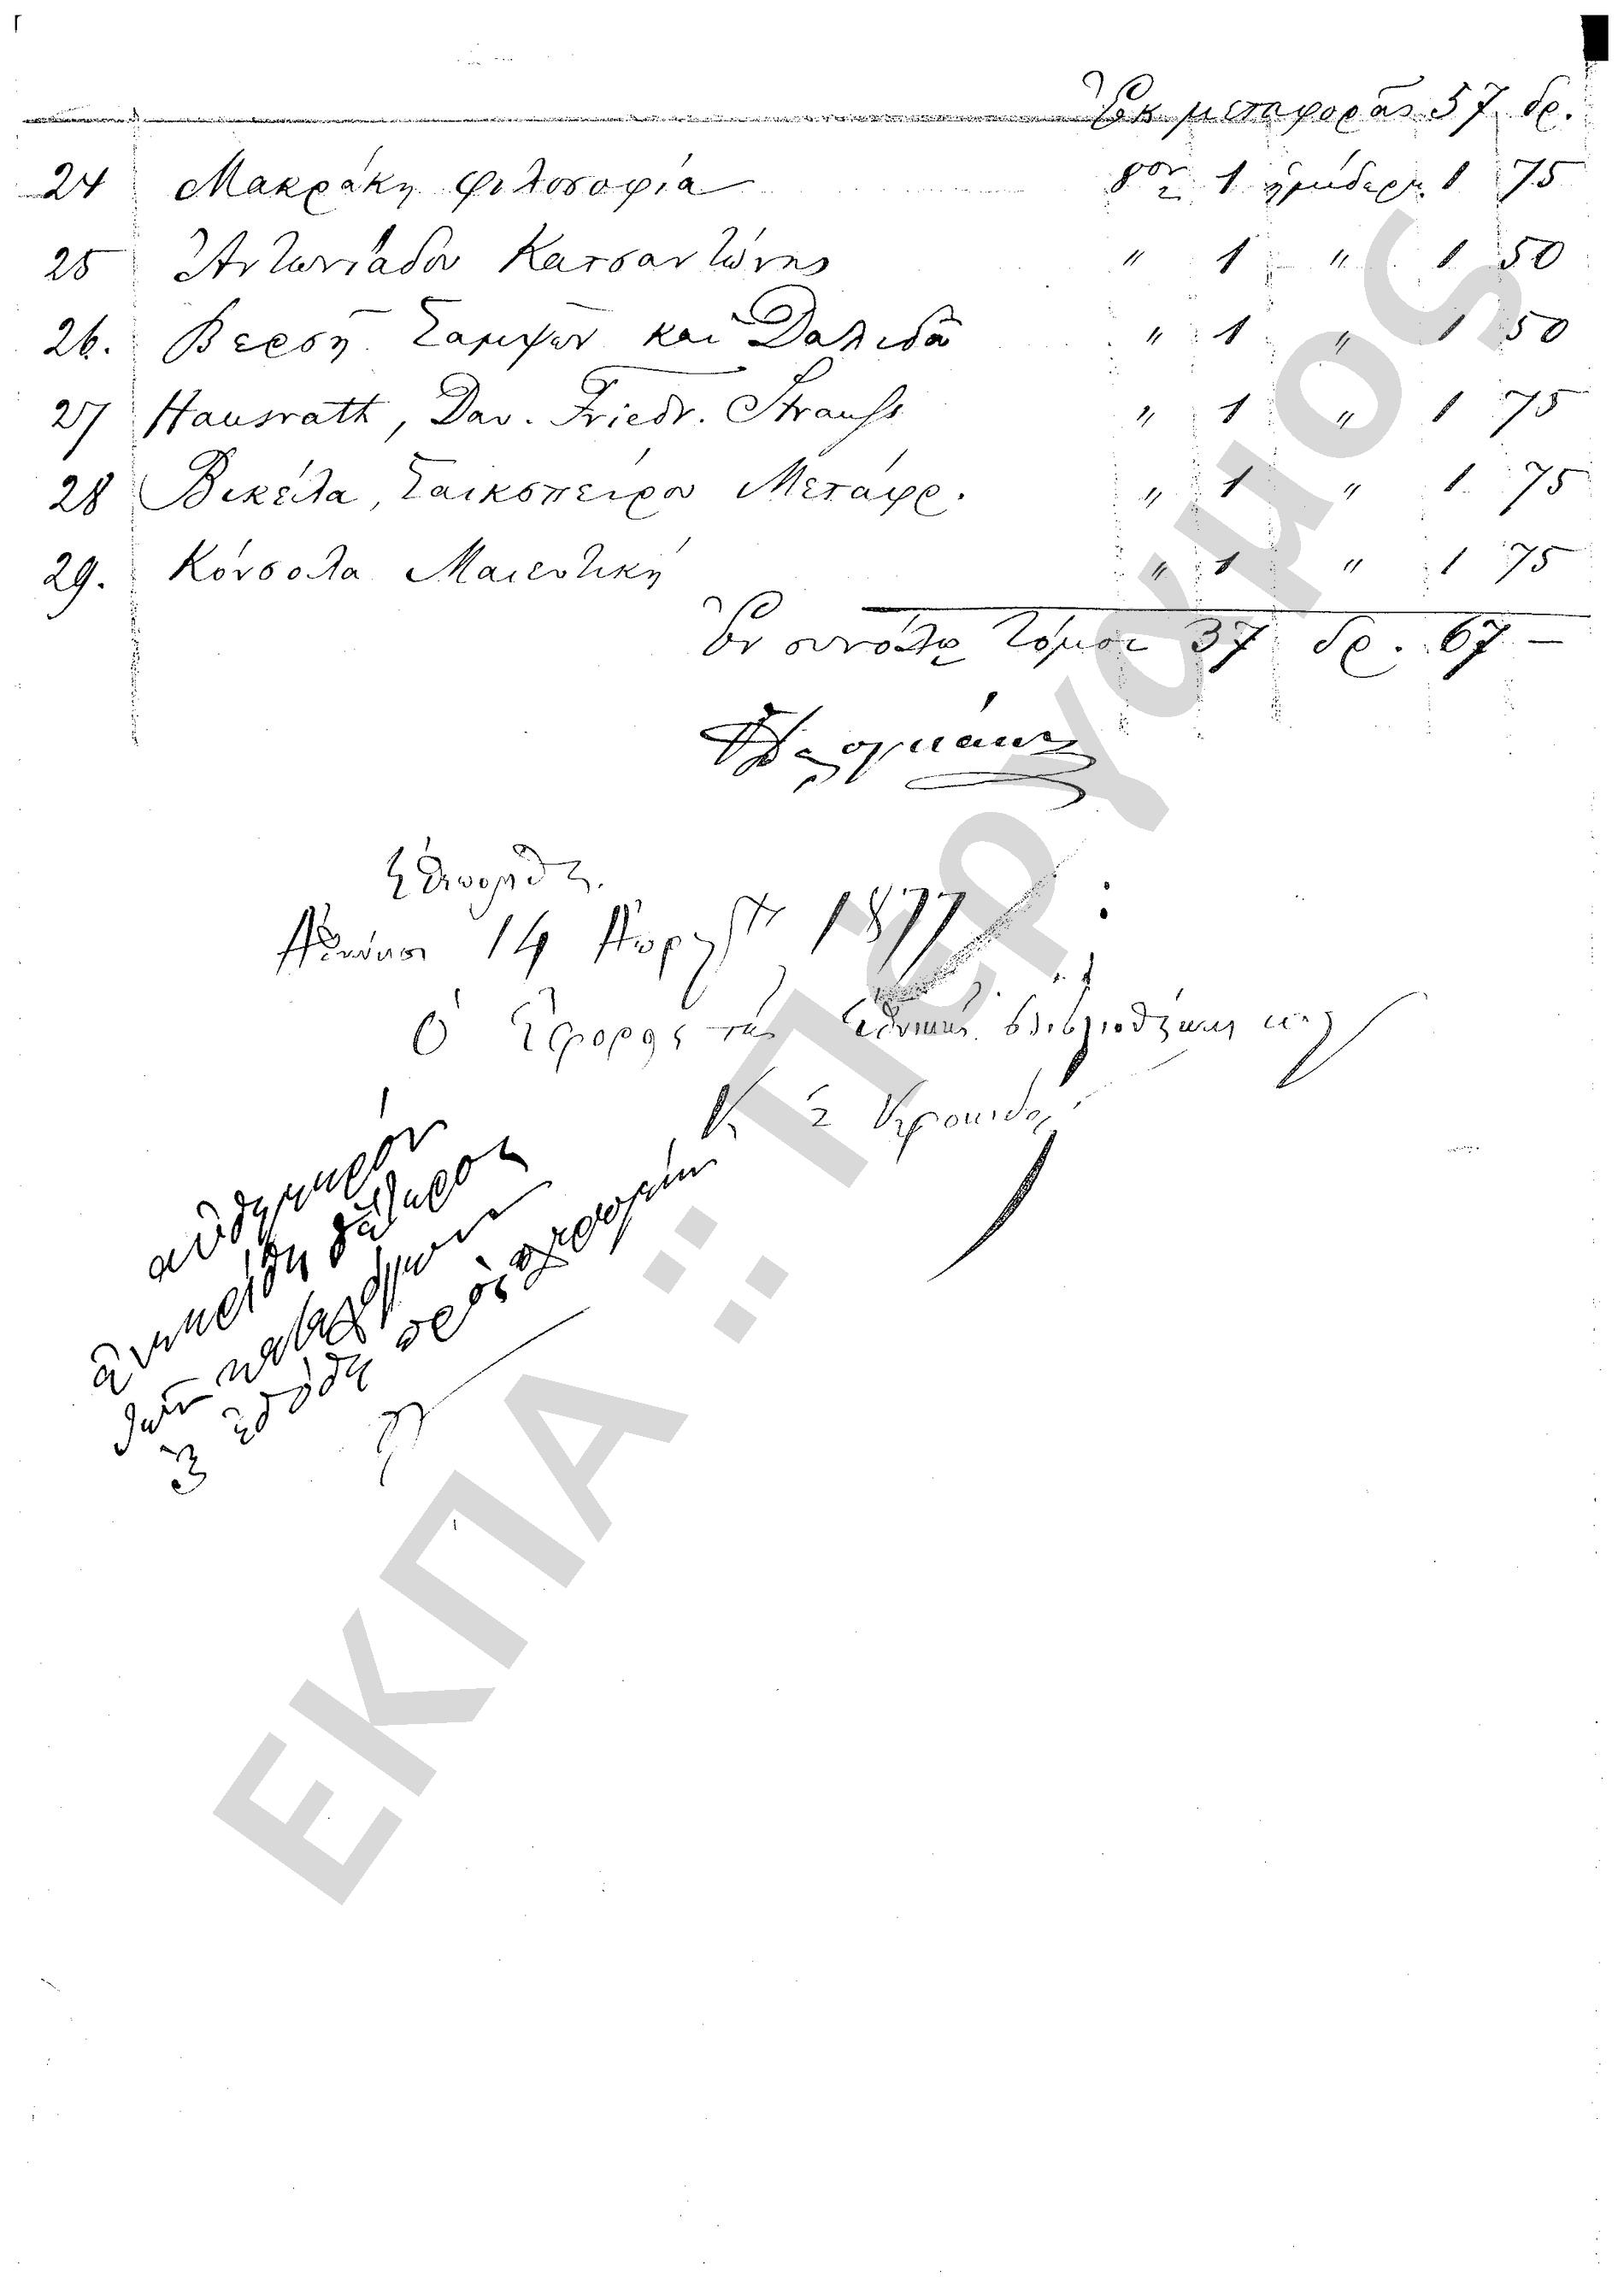 Ἐκ μεταφορᾶς 57 δρ.
24 Μακράκη φιλοσοφία 8ον 1 ἡμίδερμ. 1 75
25 Ἀντωνιάδου Κατσαντώνης " 1 " 1 50
26. Βερσῆ Σαμψὼν καὶ Δαλιδᾶ " 1 " 1 50
27 Hausrath, Dav. Friedr. Strauss " 1 " 1 75
28 Βικέλα, Σαικσπείρου Μετάφρ. " 1 " 1 75
29. Κόνσολα Μαιευτική " 1 " 1 75
Ἐν συνόλῳ τόμοι 37 δρ. 67 —
Ἐθεωρήθη.
Ἀθήνησι 14 1877
Ὁ Ἔφορος τῆς Ἐθνικῆς βιβλιοθήκης
αὐθημερόν
ἐδόθη
ΕΚΠΑ :: Πέργαμος